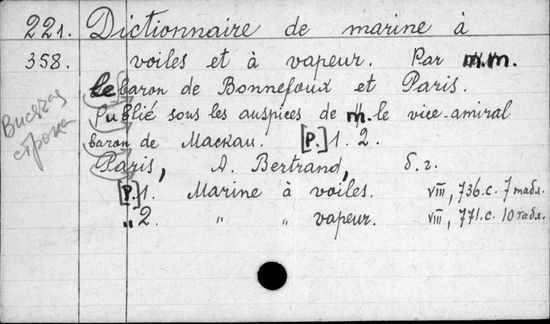 221. Dictionnaire de marine à
358. voiles et à vapeur. Par M.M.
le baron de Bonnefoux et Paris.
Publié sous les auspices de M. le vice-amiral
baron de Mackau. [P.] 1. 2.
Paris, A. Bertrand, б. г.
[P.] 1. Marine à voiles. VIII, 736.с. 7 табл.
„ 2. „ „ vapeur. VIII, 771.с. 10 табл.
Висячая
строка